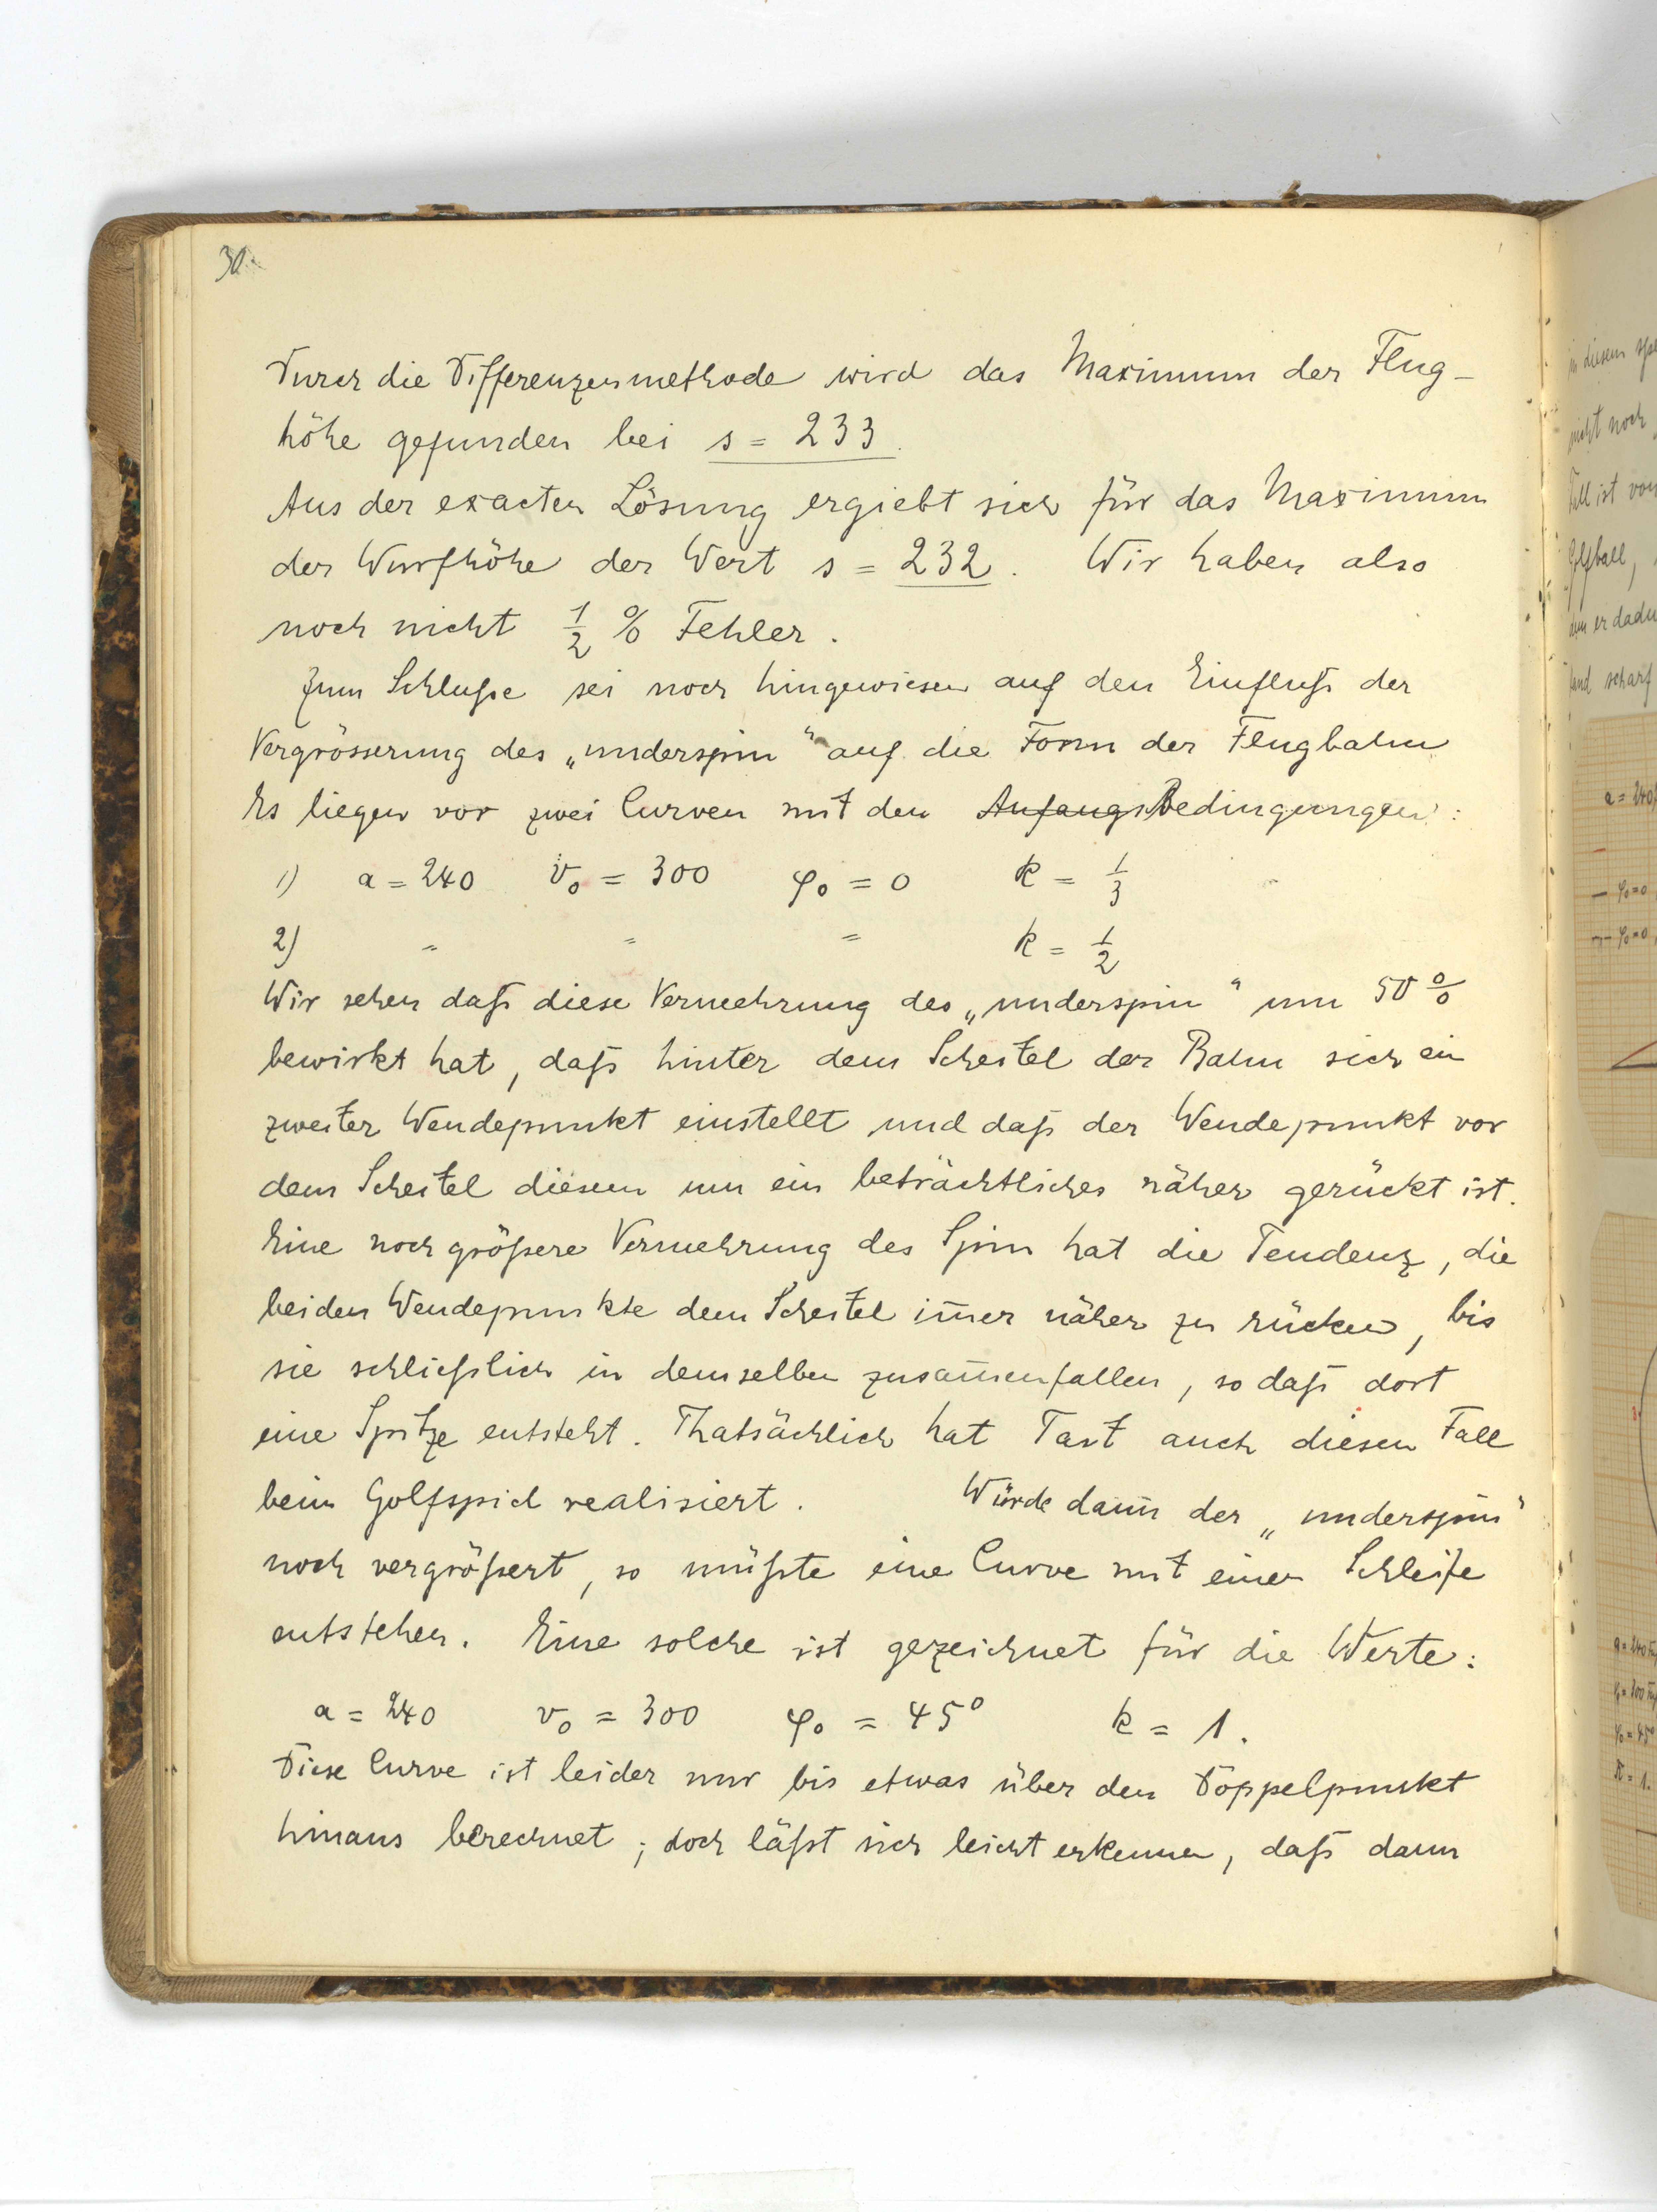 30.
Durch die Differenzenmethode wird das Maximum der Flug-
höhe gefunden bei s = 233.
Aus der exacten Lösung ergiebt sich für das Maximum
der Wurfhöhe der Wert s = 232. Wir haben also
noch nicht 1/2 % Fehler.
Zum Schluße sei noch hingewiesen auf den Einfluß der
Vergrösserung des „underspin“ auf die Form der Flugbahn
Es liegen vor zwei Curven mit den Anfangs Bedingungen:
1) a = 240 v₀ = 300 φ₀ = 0 k = 1/3
2) " " " k = 1/2
Wir sehen daß diese Vermehrung des „underspin“ um 50 %
bewirkt hat, daß hinter dem Scheitel der Bahn sich ein
zweiter Wendepunkt einstellt und daß der Wendepunkt vor
dem Scheitel diesem um ein beträchtliches näher gerückt ist.
Eine noch größere Vermehrung des Spin hat die Tendenz, die
beiden Wendepunkte dem Scheitel im̅er näher zu rücken, bis
sie schließlich in demselben zusam̅enfallen, so daß dort
eine Spitze entsteht. Thatsächlich hat Tait auch diesen Fall
beim Golfspiel realisiert. Würde dann der „underspin“
noch vergrößert, so müßte eine Curve mit einer Schleife
entstehen. Eine solche ist gezeichnet für die Werte:
a = 240 v₀ = 300 φ₀ = 45° k = 1.
Diese Curve ist leider nur bis etwas über den Doppelpunkt
hinaus berechnet; doch läßt sich leicht erkennen, daß dann
in diesem
nicht noch
Fall ist von
Golfball,
und scharf
a = 240
φ₀=0
φ₀=0
a = 240
φ₀=45°
k = 1.